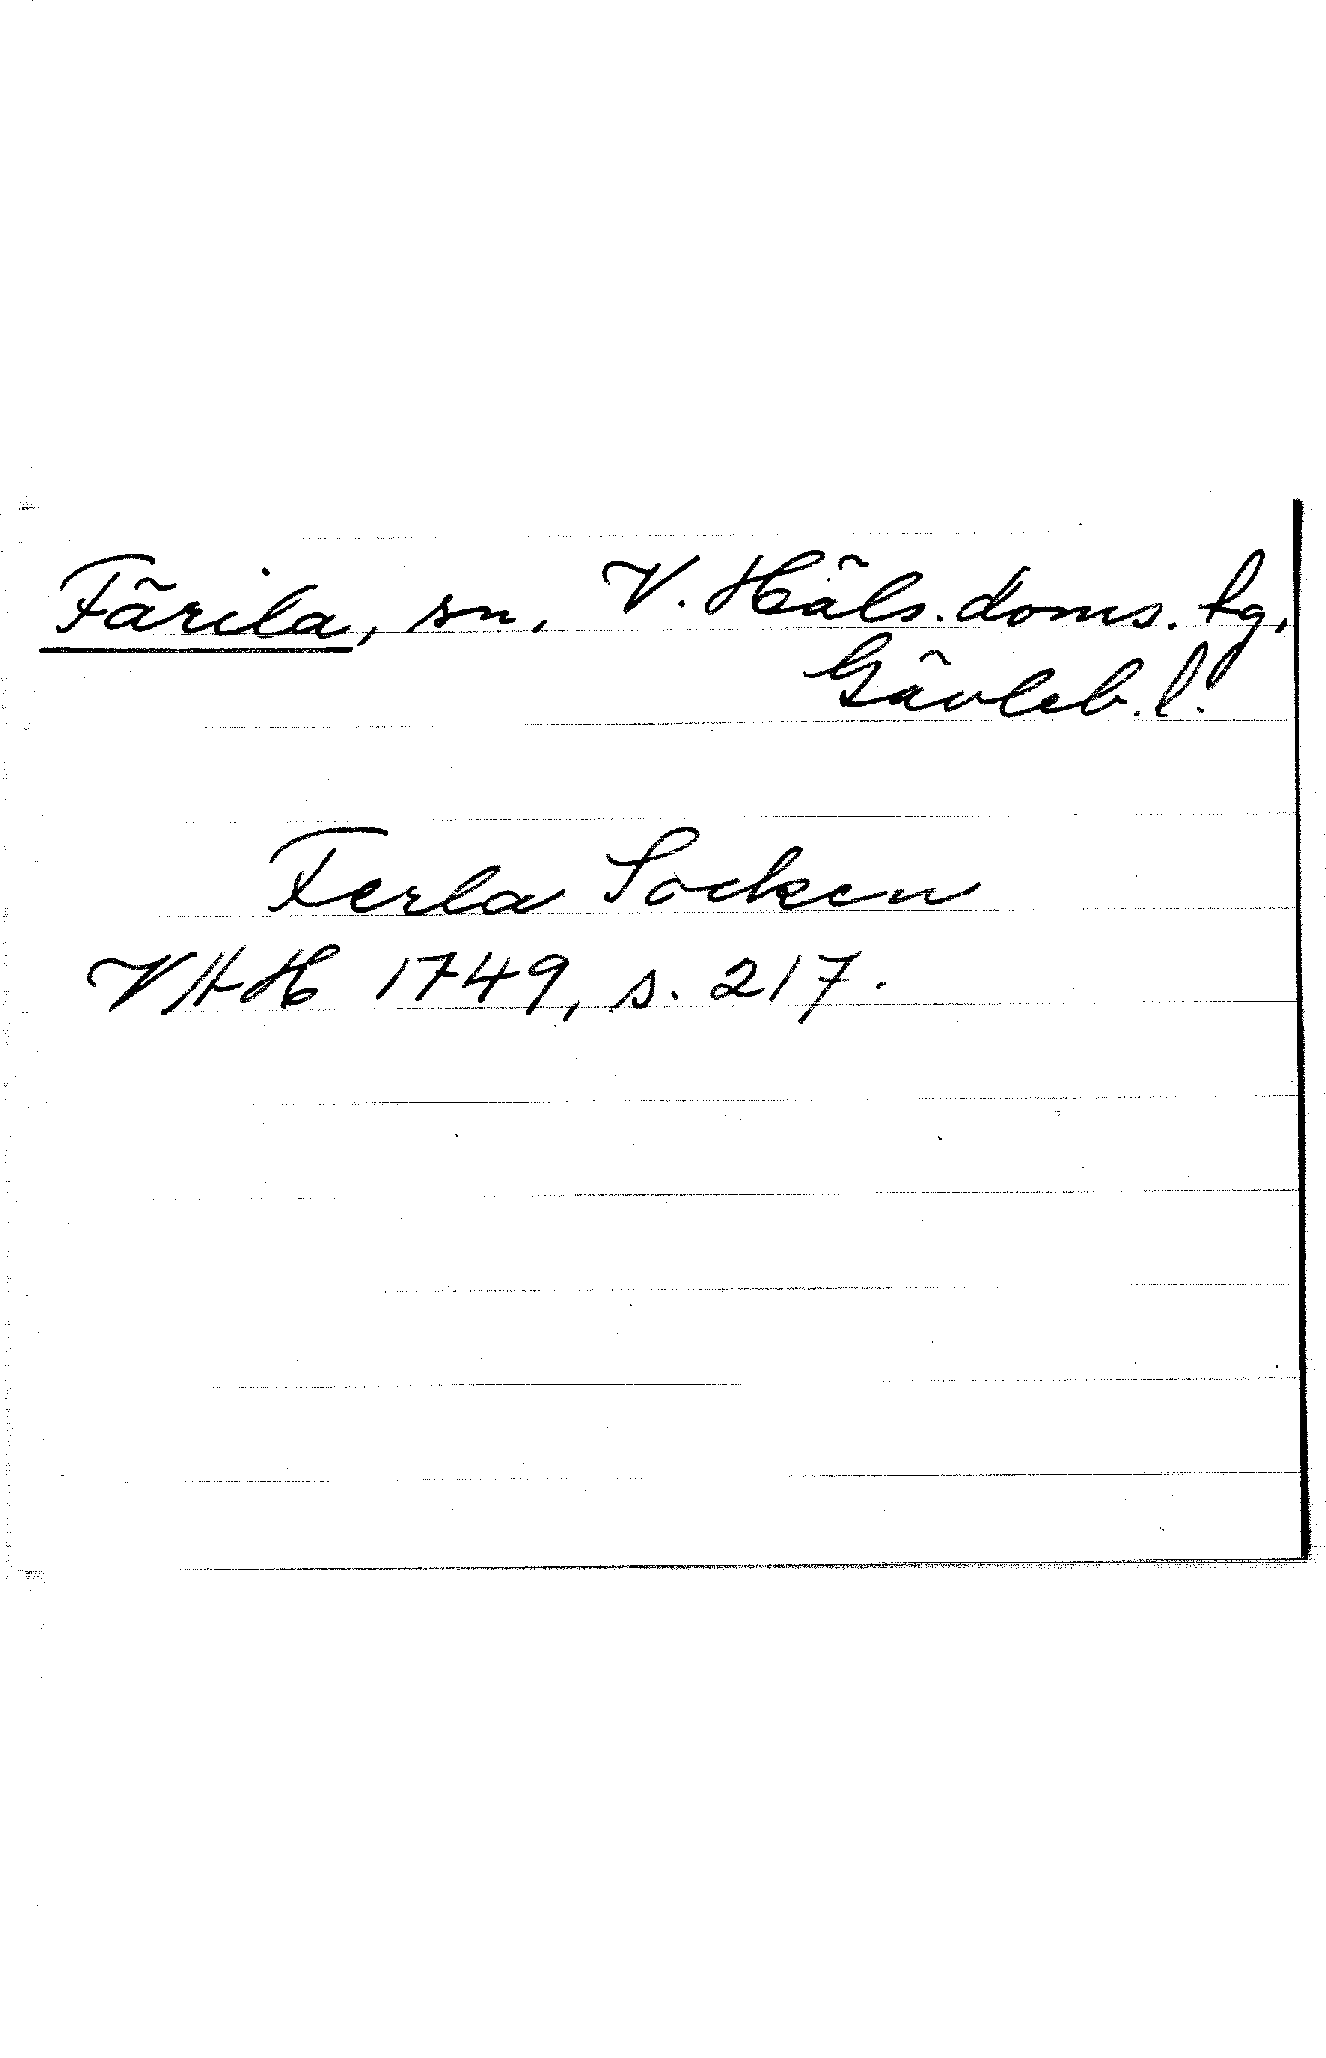 Färila, sn, V. Häls. doms. fg,
Gävleb. l.
Ferla Socken
VHH 1749, s. 217.